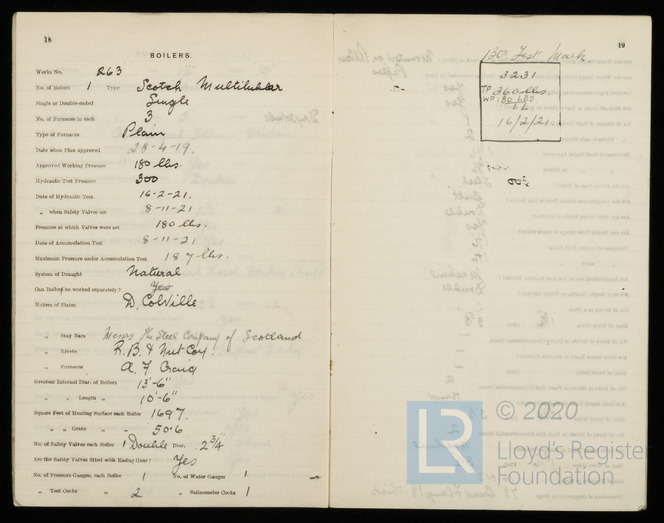 18
BOILERS.
Works No. R63
No. of Boilers 1 Type Scotch Multitubular
Single or Double-ended Single
No. of Furnaces in each 3
Type of Furnaces Plain
Date when Plan approved 28-4-19.
Approved Working Pressure 180 lbs.
Hydraulic Test Pressure 300
Date of Hydraulic Test 16-2-21.
" when Safety Valves set 8-11-21
Pressure at which Valves were set 180 lbs.
Date of Accumulation Test 8-11-21
Maximum Pressure under Accumulation Test 187 lbs.
System of Draught Natural
Can Boilers be worked separately? Yes
Makers of Plates D. Colville
" Stay Bars Messrs The Steel Company of Scotland
" Rivets R.B. & Nut Coy.
" Furnaces A. F Craig
Greatest Internal Diar. of Boilers 13'-6"
" " Length " 10'-6"
Square Feet of Heating Surface each Boiler 1697.
" " Grate " " 50.6
No. of Safety Valves each Boiler 1 Double Diar. 2 3/4"
Are the Safety Valves fitted with Easing Gear? Yes
No. of Pressure Gauges, each Boiler 1 No. of Water Gauges 1
" Test Cocks " 2 " Salinometer Cocks 1
19
Test Mark
3231
TP 360 lbs.
WP 180 LBS
16/2/21
300
© 2020
LR
Lloyd's Register
Foundation